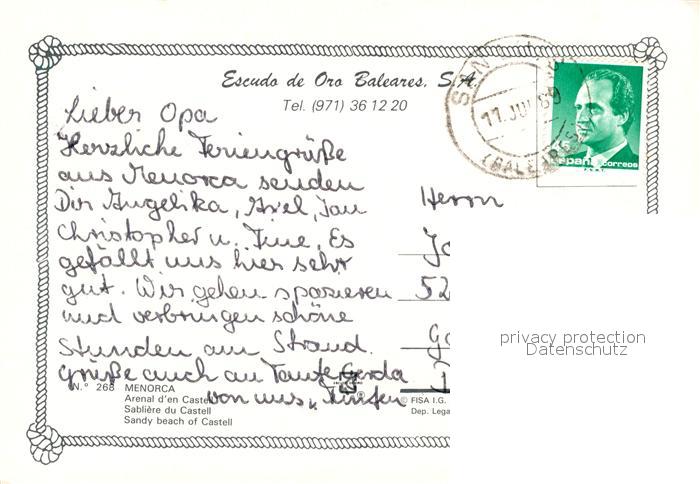 Escudo de Oro Baleares, S.A.
Tel. (971) 36 12 20
Lieber Opa
Herzliche Feriengrüße
aus Menorca senden
Dir Angelika, Axel, Jan
Christopher u. Tine. Es
gefällt uns hier sehr
gut. Wir gehen spazieren
und verbringen schöne
Stunden am Strand.
Grüße auch an Tante Gerda
von uns
N.° 268 MENORCA
Arenal d'en Castell
Sablière du Castell
Sandy beach of Castell
© FISA I.G.
Dep. Lega
11 JUL 89
(BALEARES)
españa correos
Herrn
52
privacy protection
Datenschutz